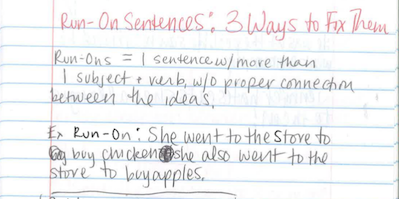 Run-On Sentences: 3 Ways to Fix Them
Run-Ons = 1 sentence w/ more than
1 subject + verb, w/o proper connection
between the ideas.
Ex Run-On: She went to the store to
buy chicken she also went to the
store to buy apples.